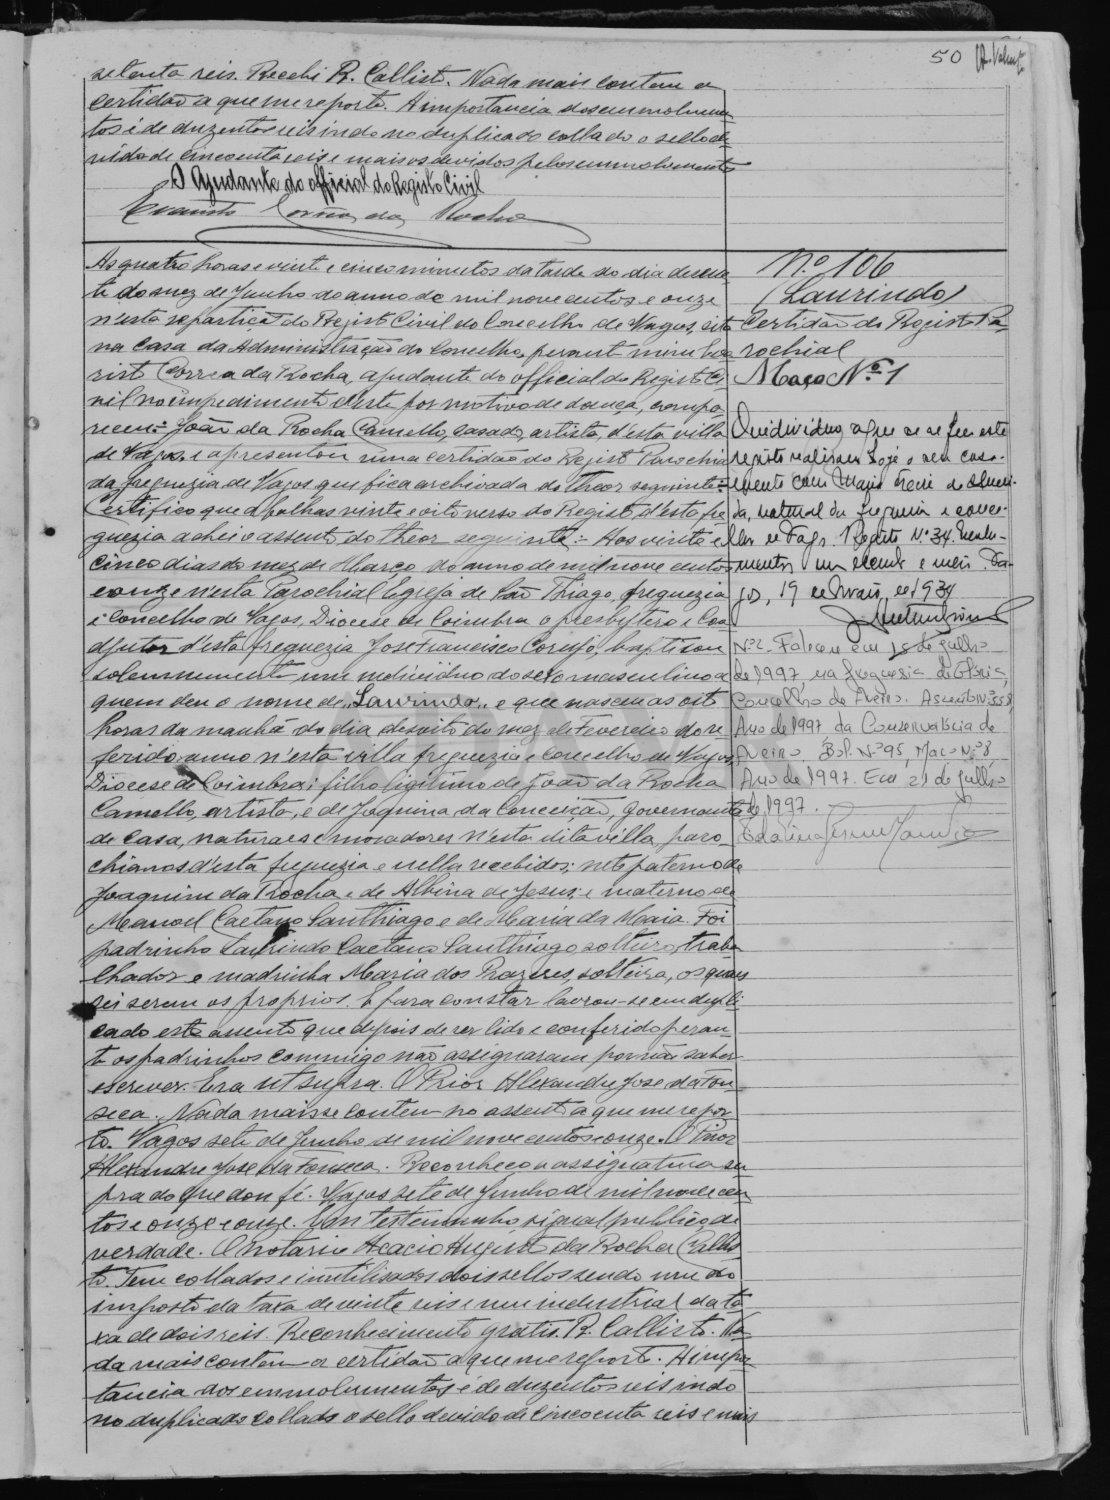 50
setenta reis. Recebi R. Callisto. Nada mais contem a
certidão a que me reporto. A importancia dos emmolumen
tos é de duzentos reis indo no duplicado collado o sello de
vido de cincoenta reis e mais os devidos pelos emmolumentos
O Ajudante do official do Registo Civil
Evaristo Corrêa da Rocha
As quatro horas e vinte e cinco minutos da tarde do dia
do mez de Junho do anno de mil nove centos e onze
n'esta repartição do Registo Civil do Concelho de Vagos, sita
na casa da Administração do Concelho, perante mim Eva
risto Corrêa da Rocha, ajudante do official do Registo Ci
vil no impedimento d'este por motivo de doença, compa
receu: João da Rocha Camello, casado, artista, d'esta villa
de Vagos, e apresentou uma certidão do Registo Parochial
da freguezia de Vagos, que fica archivada do theor seguinte:
Certifico que a folhas vinte e oito verso do Registo d'esta fre
guezia achei o assento do theor seguinte: Aos vinte e
cinco dias do mez de Março do anno de mil nove centos
e onze n'esta Parochial Egreja de São Thiago, freguezia
e Concelho de Vagos, Diocese de Coimbra o presbytero e Coa
djutor d'esta freguezia José Francisco Corujo, baptisou
solemnemente um individuo do sexo masculino a
quem deu o nome de "Laurindo" e que nasceu as oito
horas da manhã do dia desoito do mez de Fevereiro do re
ferido anno n'esta villa freguezia e concelho de Vagos,
Diocese de Coimbra; filho legitimo de João da Rocha
Camello, artista, e de Joaquina da Conceição, governanta
de casa, naturaes e moradores n'esta dita villa, paro
chianos d'esta freguezia e nella recebidos; neto paterno de
Joaquim da Rocha e de Albina de Jesus; e materno de
Manoel Caetano Santhiago e de Maria da Maia. Foi
padrinho Laurindo Caetano Santhiago, solteiro, traba
lhador e madrinha Maria dos Prazeres, solteira, os quaes
sei serem os proprios. E para constar lavrou-se em dupli
cado este assento que depois de ser lido e conferido peran
te os padrinhos commigo não assignaram por não saber
escrever. Era ut supra. O Prior Alexandre José da Fon
seca. Nada mais se contem no assento a que me repor
to. Vagos sete de Junho de mil nove centos e onze. O Prior
Alexandre José da Fonseca. Reconheço a assignatura su
pra do que dou fé. Vagos sete de Junho de mil nove cen
tos e onze e onze. Em testemunho signal publico de
verdade. O notario Acacio Augusto da Rocha Callis
to. Tem collados e inutilisados dois sellos sendo um do
imposto da taxa de vinte reis e um industrial da ta
xa de dois reis. Reconhecimento gratis. R. Callisto. Na
da mais contem a certidão a que me reporto. A impor
tancia dos emmolumentos é de duzentos reis indo
no duplicado collado o sello devido de cincoenta reis e mais
Nº 106
(Laurindo)
Certidão do Registo Pa
rochial
Maço Nº 1
O individuo a que se refere este
registo realisou hoje o seu casa-
mento com Maria de Almei-
da, natural da freguesia e conce-
lho de Vagos. Registo N.º 34. Emolu-
mentos um escudo e meio. Va-
gos, 19 de Maio de 1934
Nº 2. Faleceu em 15 de Julho
de 1997 na freguesia da Glória,
Concelho de Aveiro. Assento Nº 358,
Ano de 1997 da Conservatória de
Aveiro. Bol. Nº 95, Maço Nº 8,
Ano de 1997. Em 21 de Julho
de 1997.